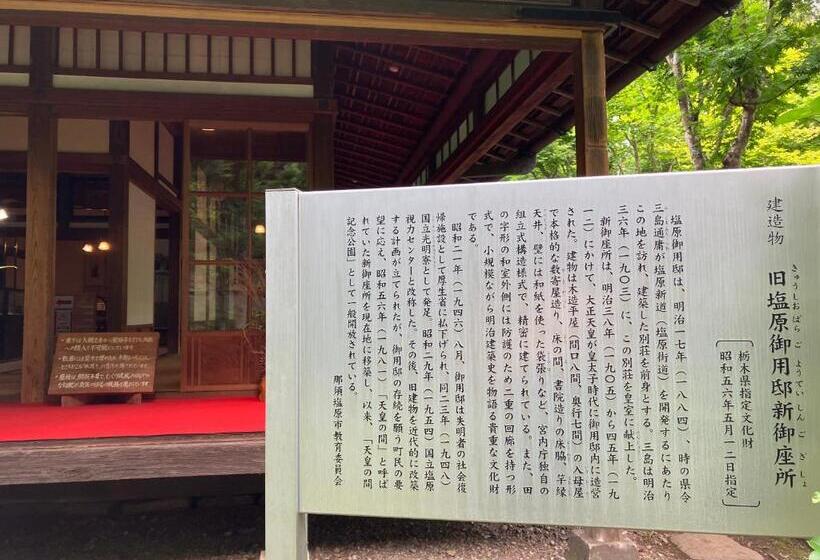 建造物
旧塩原御用邸新御座所
きゅうしおばらごようていしんござしょ
栃木県指定文化財
昭和五六年五月一二日指定
塩原御用邸は、明治一七年（一八八四）、時の県令
三島通庸が塩原新道（塩原街道）を開発するにあたり
この地を訪れ、建築した別荘を前身とする。三島は明治
三六年（一九〇三）に、この別荘を皇室に献上した。
新御座所は、明治三八年（一九〇五）から四五年（一九
一二）にかけて、大正天皇が皇太子時代に御用邸内に造営
された。建物は木造平屋（間口八間、奥行七間）の入母屋
で本格的な数寄屋造り、床の間、書院造りの床脇、竿縁
天井、壁には和紙を使った袋張りなど、宮内庁独自の
組立式構造様式で、精密に建てられている。また、田
の字形の和室外側には防護のため二重の回廊を持つ形
式で、小規模ながら明治建築史を物語る貴重な文化財
である。
昭和二一年（一九四六）八月、御用邸は失明者の社会復
帰施設として厚生省に払下げられ、同二三年（一九四八）
国立光明寮として発足、昭和二九年（一九五四）国立塩原
視力センターと改称した。その後、旧建物を近代的に改築
する計画が立てられたが、御用邸の存続を願う町民の要
望に応え、昭和五六年（一九八一）「天皇の間」と呼ば
れていた新御座所を現在地に移築し、以来、「天皇の間
記念公園」として一般開放されている。
那須塩原市教育委員会